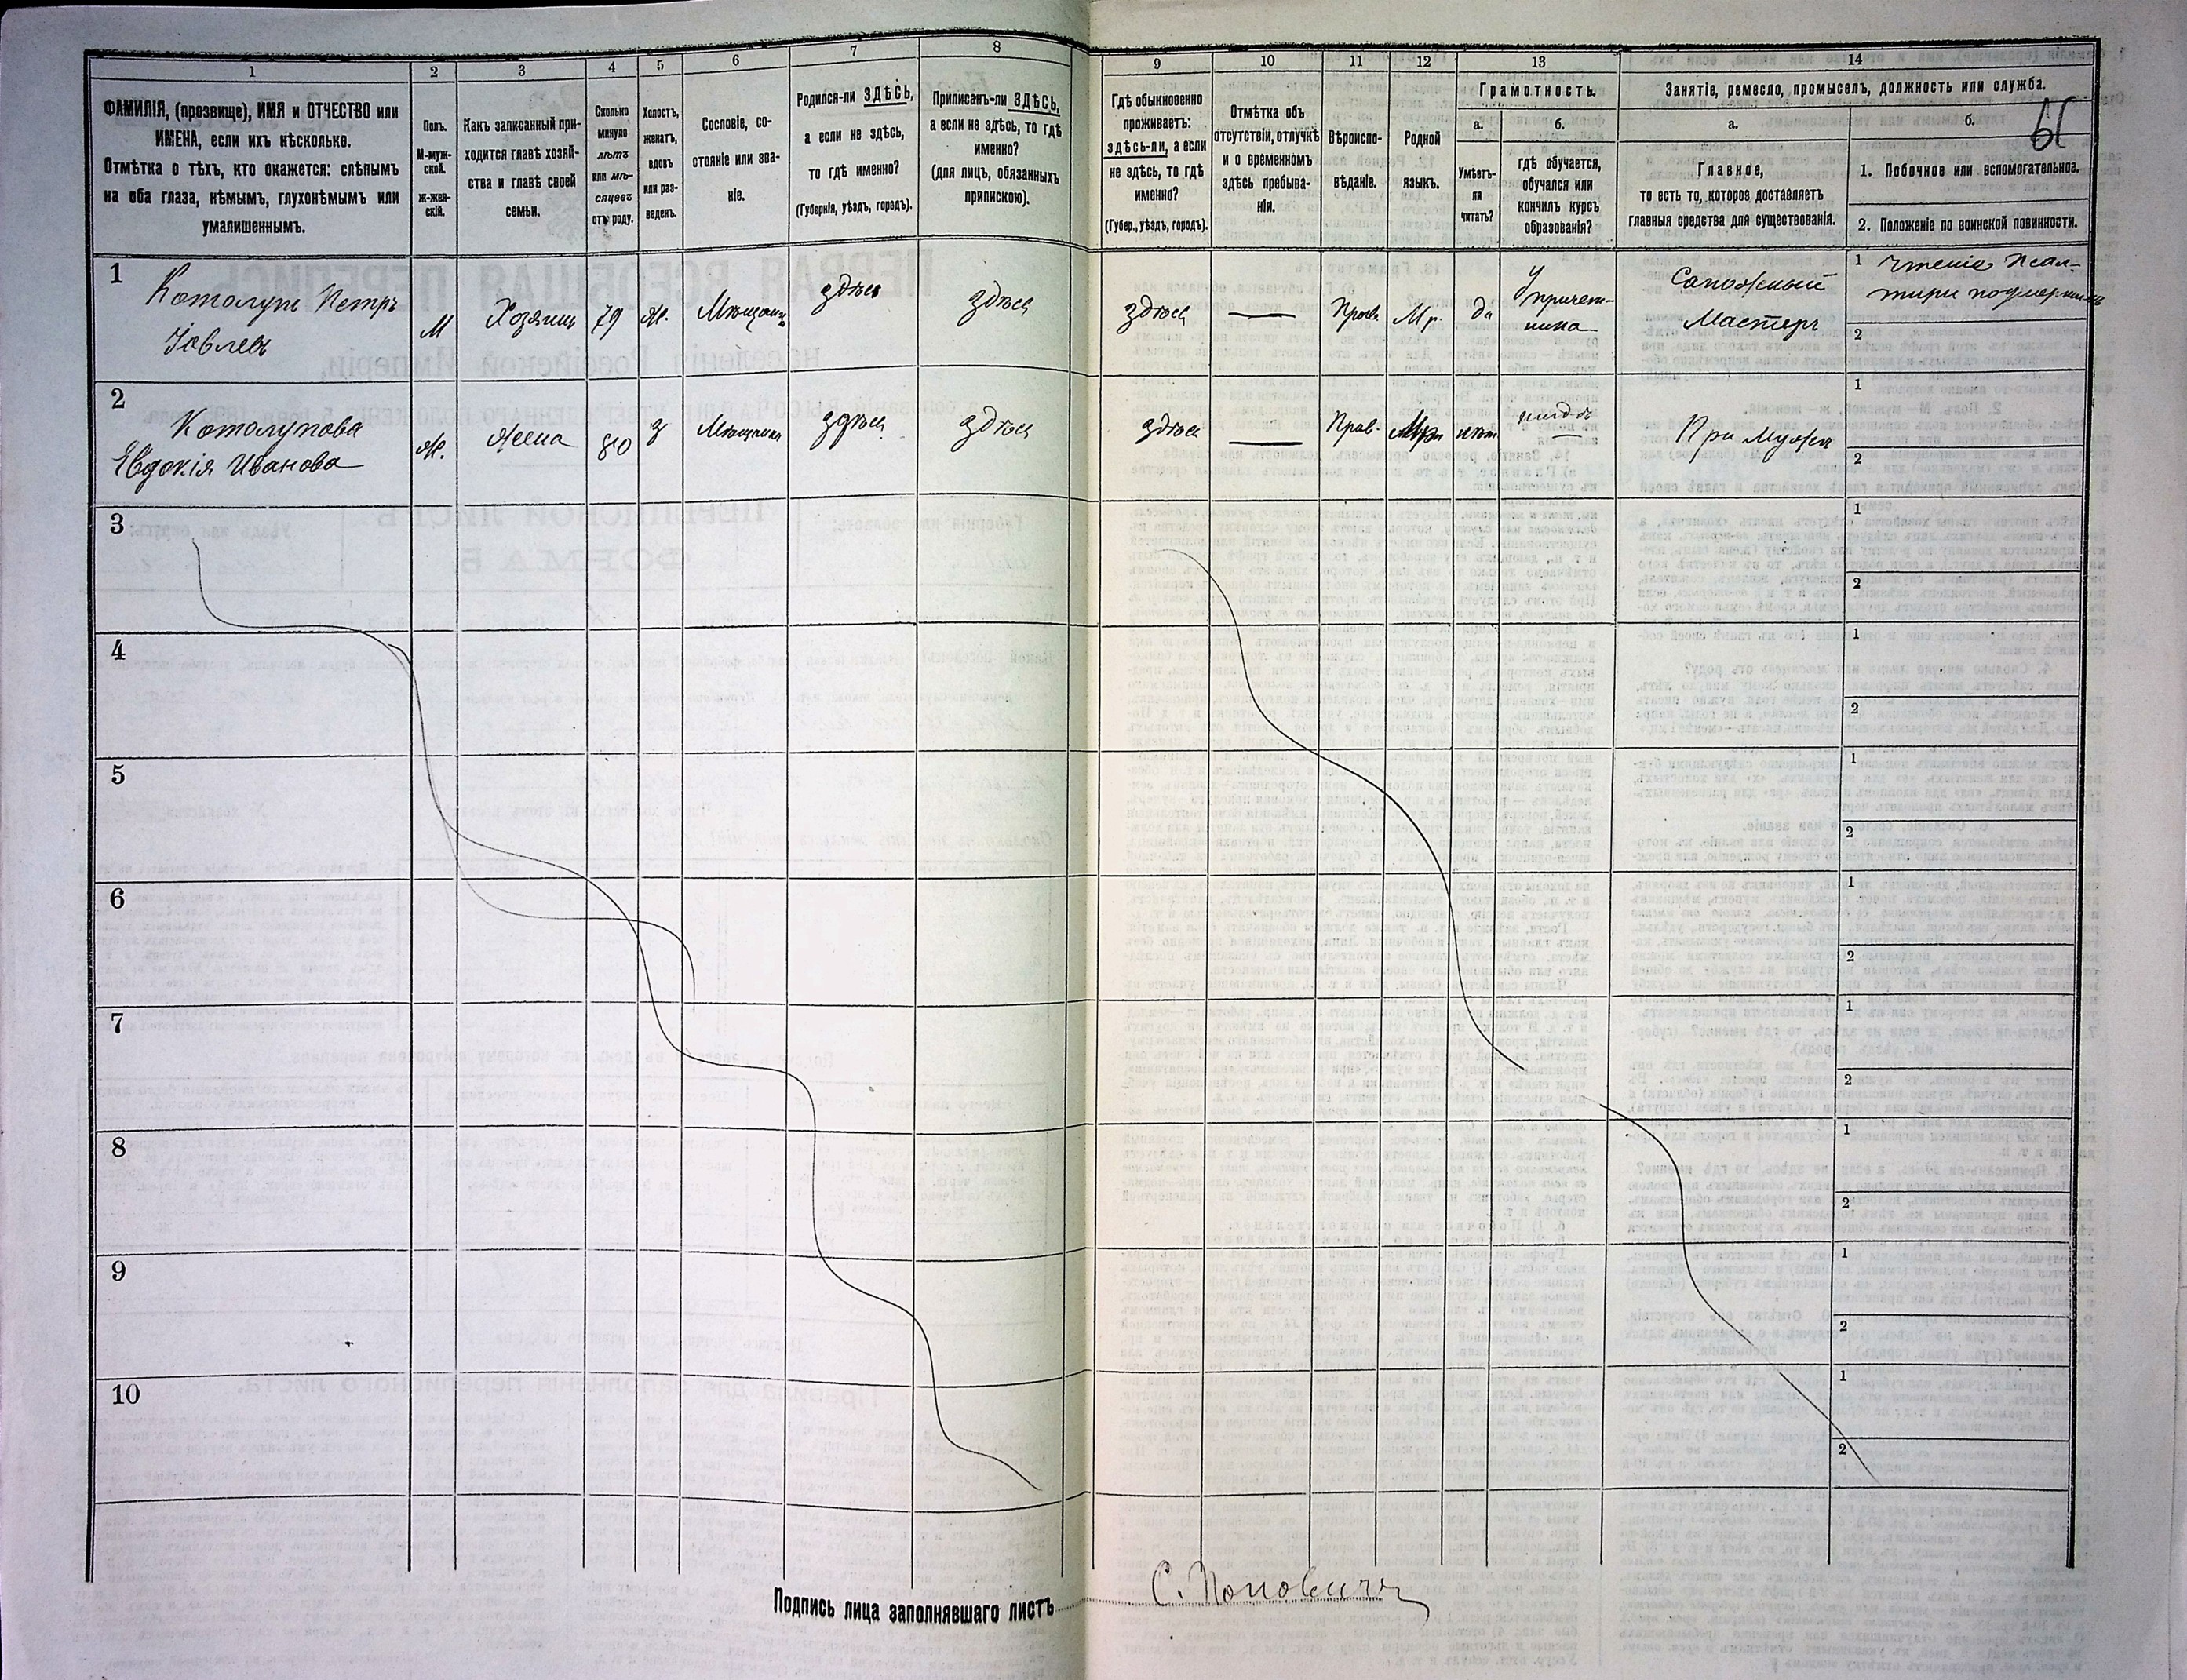 1
2
3
4
5
6
7
8
ФАМИЛІЯ, (прозвище), ИМЯ и ОТЧЕСТВО или
ИМЕНА, если ихъ нѣсколько.
Отмѣтка о тѣхъ, кто окажется: слѣпымъ
на оба глаза, нѣмымъ, глухонѣмымъ или
умалишеннымъ.
Полъ.
М-муж-
ской.
ж-жен-
скій.
Какъ записанный при-
ходится главѣ хозяй-
ства и главѣ своей
семьи.
Сколько
минуло
лѣтъ
или мѣ-
сяцевъ
отъ роду.
Холостъ,
женатъ,
вдовъ
или раз-
веденъ.
Сословіе, со-
стояніе или зва-
ніе.
Родился-ли ЗДѢСЬ,
а если не здѣсь,
то гдѣ именно?
(Губернія, уѣздъ, городъ).
Приписанъ-ли ЗДѢСЬ,
а если не здѣсь, то гдѣ
именно?
(для лицъ, обязанныхъ
припискою).
9
10
11
12
13
14
Гдѣ обыкновенно
проживаетъ:
здѣсь-ли, а если
не здѣсь, то гдѣ
именно?
(Губер., уѣздъ, городъ).
Отмѣтка объ
отсутствіи, отлучкѣ
и о временномъ
здѣсь пребыва-
ніи.
Вѣроиспо-
вѣданіе.
Родной
языкъ.
Грамотность.
а.
б.
Умѣетъ-
ли
читать?
гдѣ обучается,
обучался или
кончилъ курсъ
образованія?
Занятіе, ремесло, промыселъ, должность или служба.
а.
б.
Главное,
то есть то, которое доставляетъ
главныя средства для существованія.
1. Побочное или вспомогательное.
2. Положеніе по воинской повинности.
1
Котолупъ Петръ
Іовлевъ
М
Хозяинъ
79
ж.
Мѣщанинъ
здѣсь
здѣсь
здѣсь
—
Прав.
Мр.
да
У причет-
ника
Сапожный
Мастеръ
1 Чтеніе Псал-
тири по умершимъ
2
2
Котолупова
Евдокія Иванова
Ж.
Жена
80
з
Мѣщанка
здѣсь
здѣсь
здѣсь
—
Прав.
нѣтъ
При Мужѣ
1
2
3
1
2
4
1
2
5
1
2
6
1
2
7
1
2
8
1
2
9
1
2
10
1
2
Подпись лица заполнявшаго листъ
С. Поповичъ